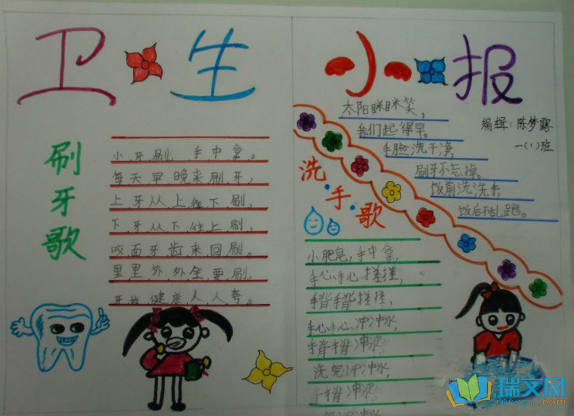 卫生小报
编辑：陈梦露
一(1)班
刷牙歌
小牙刷，手中拿。
每天早晚来刷牙，
上牙从上往下刷，
下牙从下往上刷，
咬面牙齿来回刷。
里里外外全要刷，
牙齿健康人人夸。
太阳眯眯笑，
我们起得早。
手脸洗干净，
刷牙不忘掉。
饭前洗洗手，
饭后不乱跑。
洗手歌
小肥皂，手中拿，
手心手心搓搓搓，
手背手背搓搓，
手心手心冲冲水，
手背手背冲冲水
洗完冲冲水
冲冲水
瑞文网